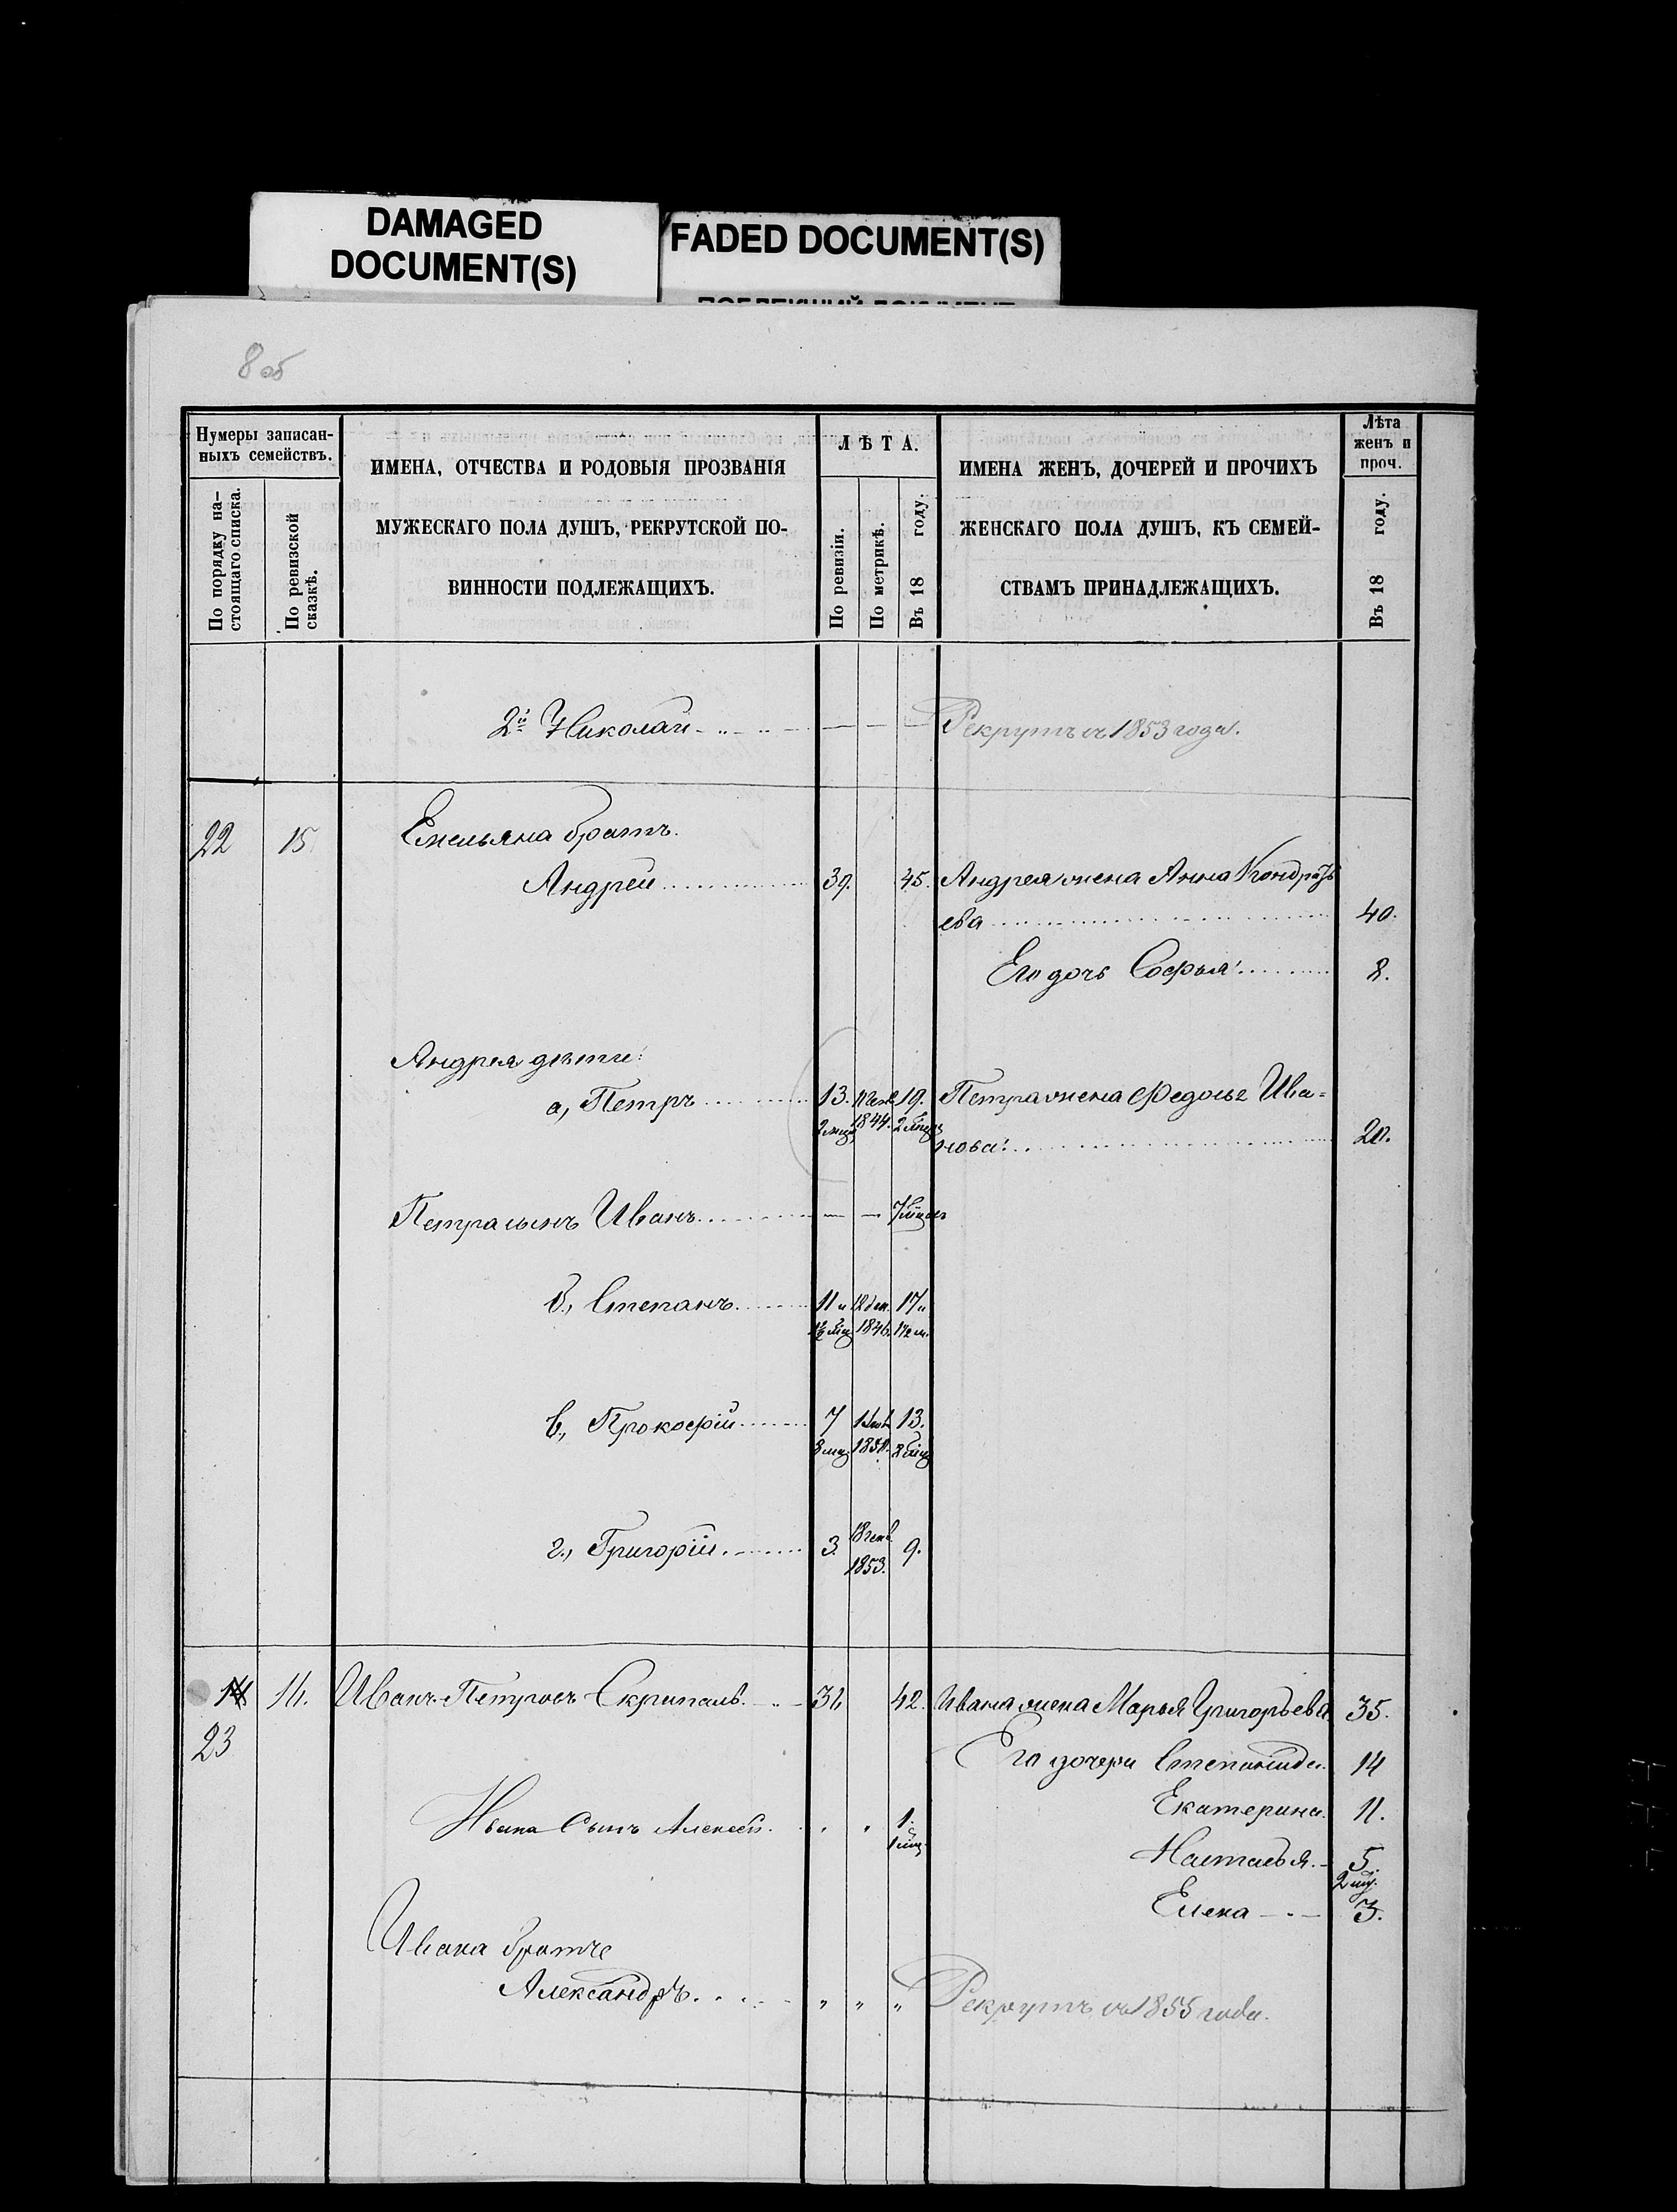 DAMAGED
DOCUMENT(S)
FADED DOCUMENT(S)
8 об
Нумеры записан-
ныхъ семействъ.
По порядку на-
стоящаго списка.
По ревизской
сказкѣ.
ИМЕНА, ОТЧЕСТВА И РОДОВЫЯ ПРОЗВАНІЯ
МУЖЕСКАГО ПОЛА ДУШЪ, РЕКРУТСКОЙ ПО-
ВИННОСТИ ПОДЛЕЖАЩИХЪ.
ЛѢТА.
По ревизіи.
По метрикѣ.
Въ 18 году.
ИМЕНА ЖЕНЪ, ДОЧЕРЕЙ И ПРОЧИХЪ
ЖЕНСКАГО ПОЛА ДУШЪ, КЪ СЕМЕЙ-
СТВАМЪ ПРИНАДЛЕЖАЩИХЪ.
Лѣта
женъ и
проч.
Въ 18 году.
2й Николай — — — Рекрутъ съ 1853 года.
22 15 Емельяна братъ.
Андрей 39. 45. Андрея жена Анна Кондрать
ева 40.
Его дочь Софья 8.
Андрея дѣти:
а, Петръ 13. 19. Петра жена Федосья Ива=
1844. нова 20.
Петра сынъ Иванъ — —
б., Степанъ 11 и 12 дек. 17 и
1846.
в., Прокофій 7 13.
г., Григорій 3. 18 генв. 9.
1853.
14 Иванъ Петровъ Скрипаль 42. Ивана жена Марья Григорьева 35.
23
Его дочери Степанида 14
Екатерина. 11.
Ивана Сынъ Алексѣй. 1.
Наталья. 5.
Елена 3.
Ивана братъ
Александръ " " " Рекрутъ съ 1855 года.